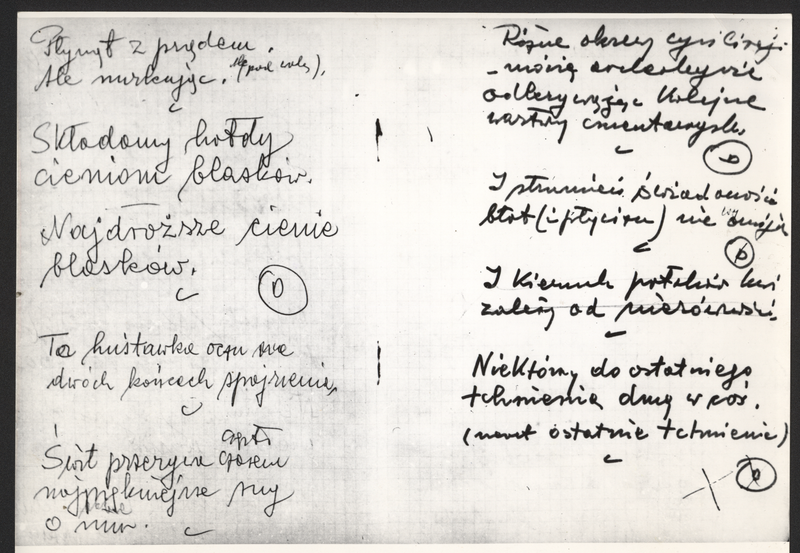 Płynąć z prądem.
Ale nurkując. (pod wodę).
Składamy hołdy
cieniom blasków.
Najdroższe cienie
blasków.
Ta huśtawka oczu na
dwóch końcach spojrzenia.
często
Świt przerywa czasem
najpiękniejsze sny
o nim.
Różne okresy cywilizacji
- mówią archeolodzy
odkrywając kolejne
warstwy cmentarzysk.
I strumień świadomości
błot (i płycizn) nie omija
I kierunek potoków krwi
zależy od nierówności.
Niektórzy do ostatniego
tchnienia dmą w coś.
(nawet ostatnie tchnienie)